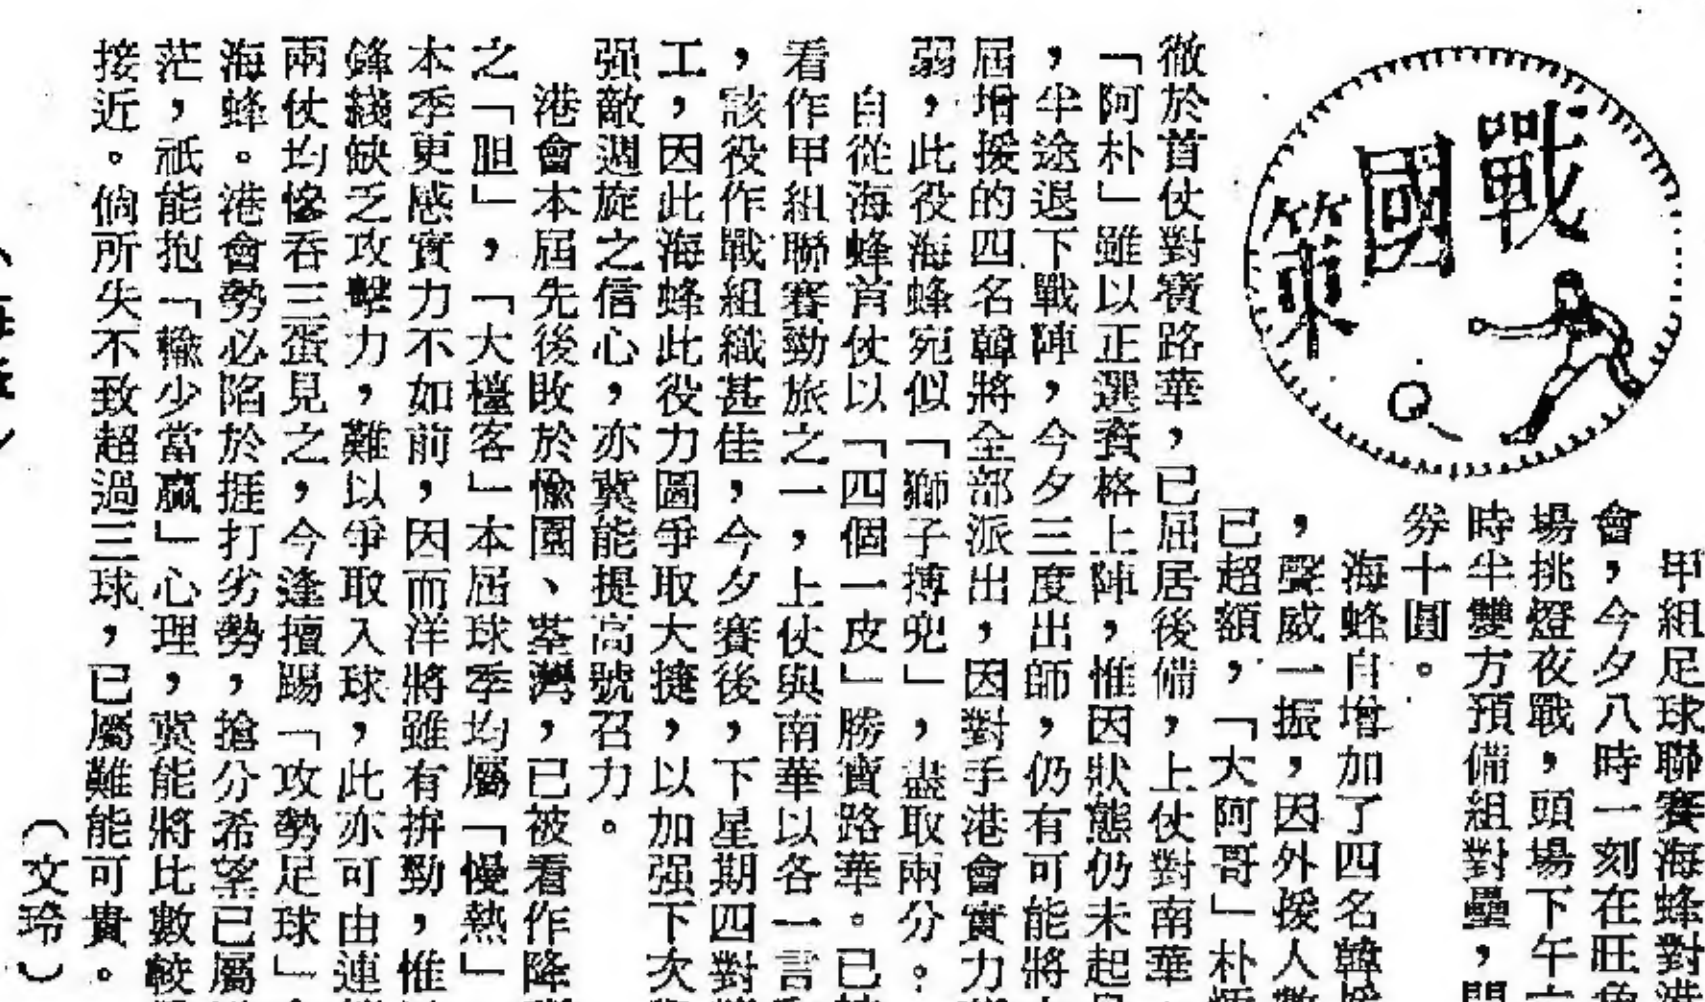 戰國策
甲組足球聯賽海蜂對港
會，今夕八時一刻在旺角
場挑燈夜戰，頭場下午六
時半雙方預備組對壘，門
券十圓。
海蜂自增加了四名韓援
，聲威一振，因外援人數
已超額，「大阿哥」朴
徹於首仗對寶路華，已屈居後備，上仗對南華
「阿朴」雖以正選資格上陣，惟因狀態仍未起
，半途退下戰陣，今夕三度出師，仍有可能將
屆增援的四名韓將全部派出，因對手港會實力
弱，此役海蜂宛似「獅子搏兜」，盡取兩分。
自從海蜂首仗以「四個一皮」勝寶路華。已
看作甲組聯賽勁旅之一，上仗與南華以各一言
，該役作戰組織甚佳，今夕賽後，下星期四對
工，因此海蜂此役力圖爭取大捷，以加强下次
强敵週旋之信心，亦冀能提高號召力。
港會本屆先後敗於愉園、荃灣，已被看作降
之「胆」，「大檯客」本屆球季均屬「慢熱」
本季更感實力不如前，因而洋將雖有拚勁，惟
鋒綫缺乏攻擊力，難以爭取入球，此亦可由連
兩仗均慘吞三蛋見之，今逢擅踢「攻勢足球」
海蜂。港會勢必陷於捱打劣勢，搶分希望已屬
茫，祇能抱「輸少當贏」心理，冀能將比數較
接近。倘所失不致超過三球，已屬難能可貴。
（文玲）